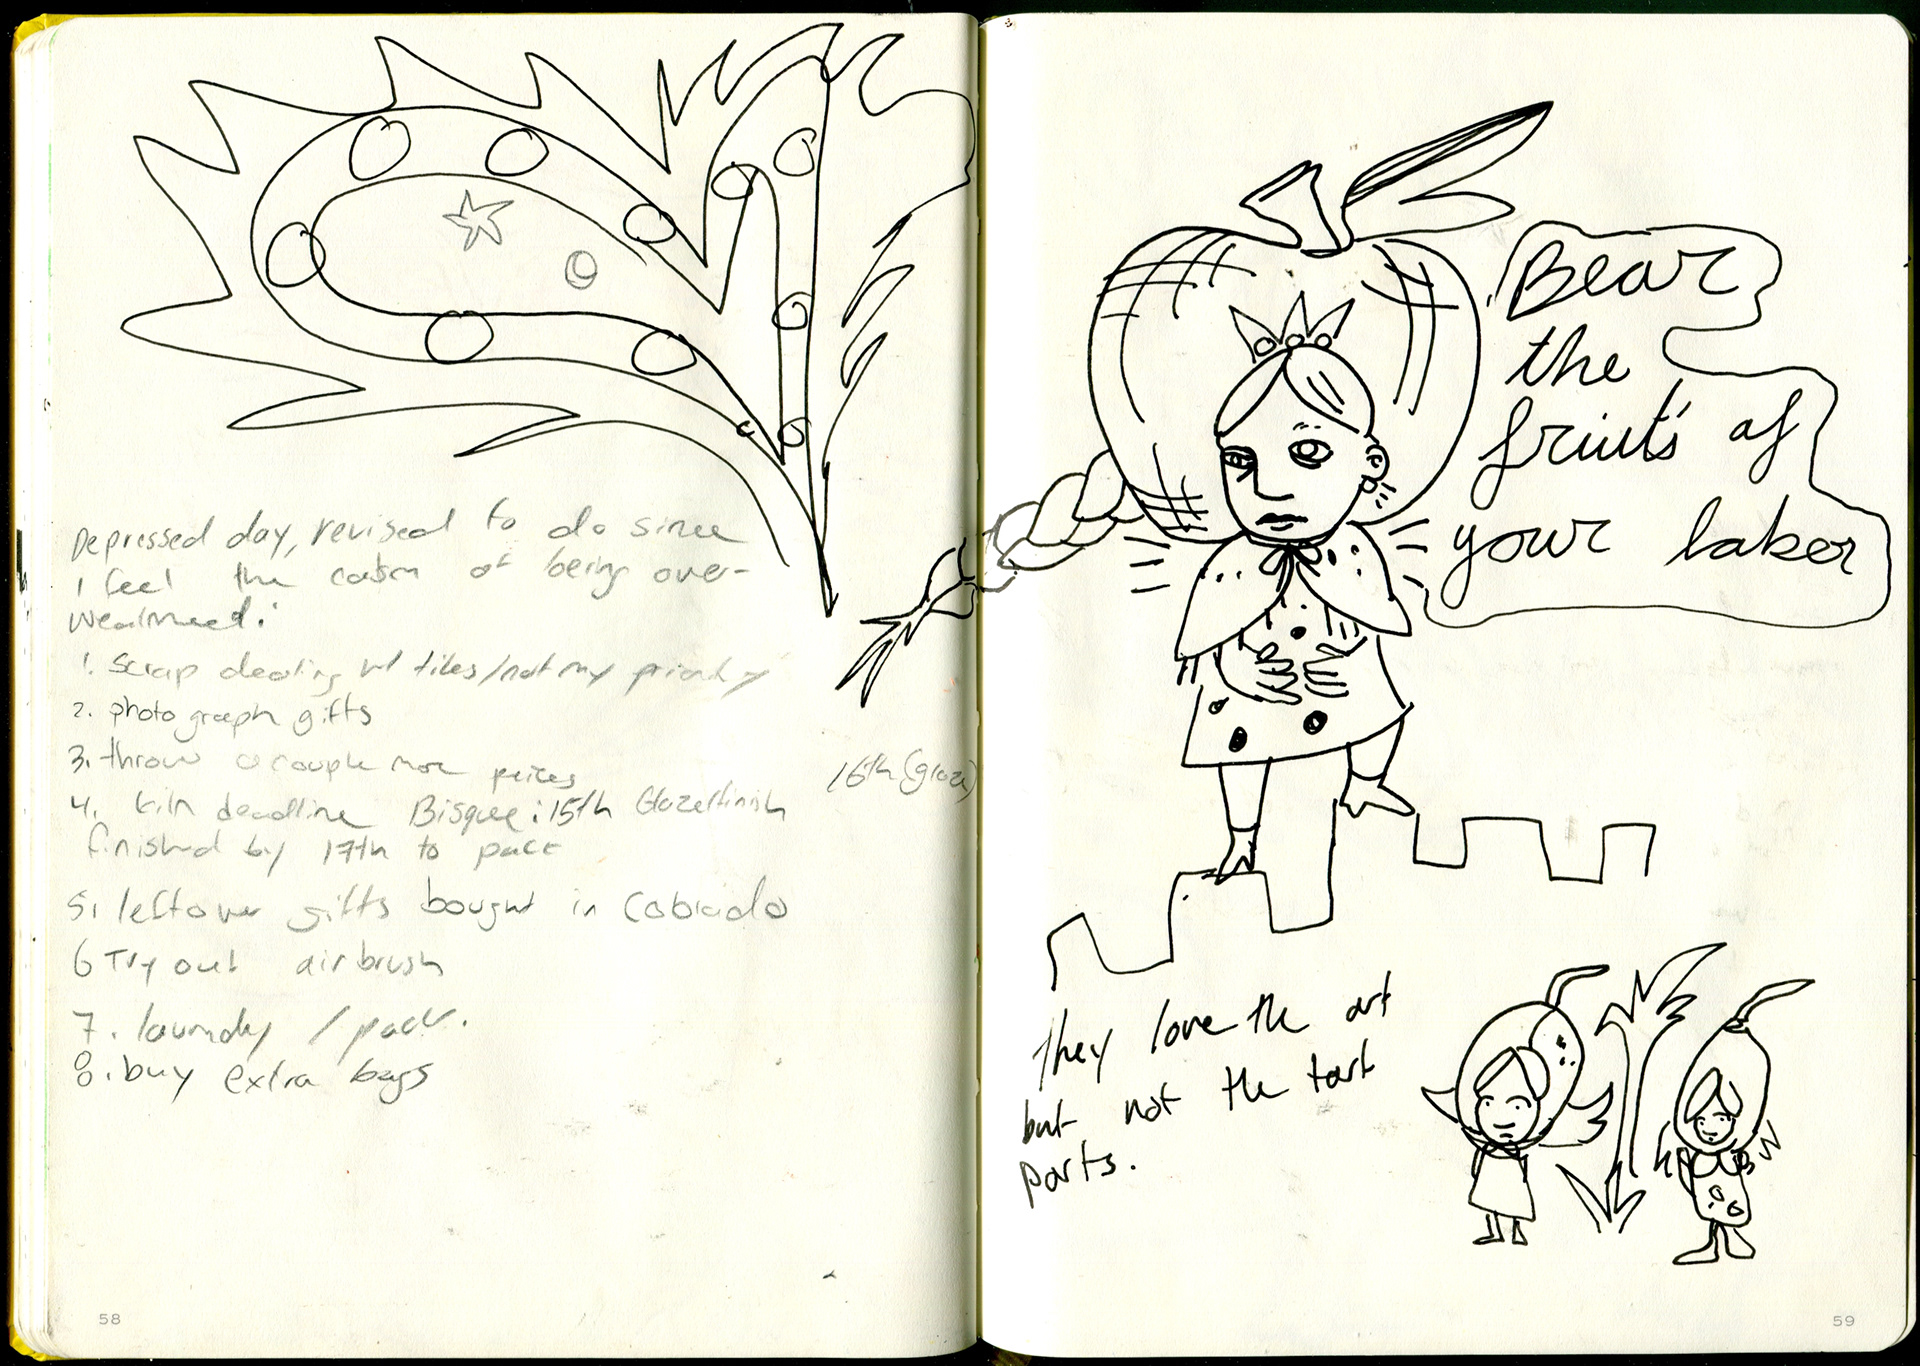 Depressed day, revised to do since
I feel the of being over-
wealmed:
1. scrap dealing w/ tiles/not my priority
2. photograph gifts
3. throw a couple more peices
16th (glaze)
4. kiln deadline Bisque: 15th Glaze/finish
finished by 17th to pack
5. leftover gifts bought in Colorado
6 Try out airbrush
7. laundry / pack.
8. buy extra bags
58
Bear
the
fruits of
your labor
they love the art
but not the tart
parts.
59